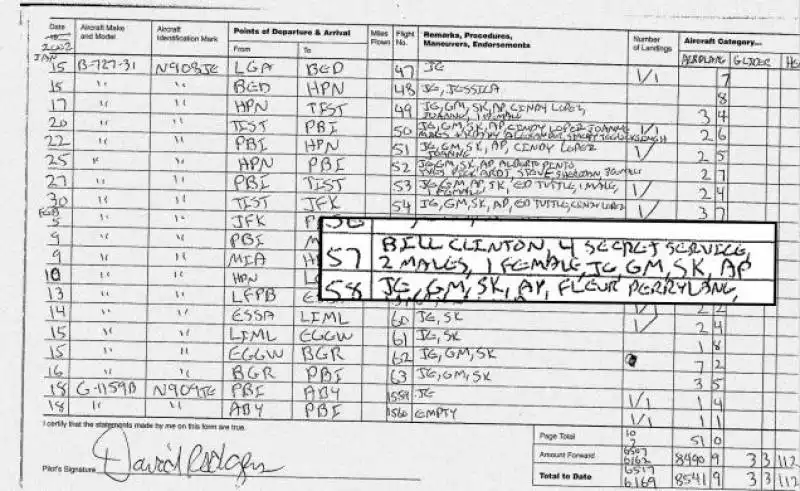 Date 2002 Aircraft Make and Model Aircraft Identification Mark Points of Departure & Arrival From To Miles Flown Flight No. Remarks, Procedures, Maneuvers, Endorsements Number of Landings Aircraft Category... AIRPLANE GLIDER
JAN
15 B-727-31 N908JE LGA BED 47 JE 1/1 7
15 " " BED HPN 48 JE, JESSICA 8
17 " " HPN TIST 49 JE, GM, SK, AP, CINDY LOPEZ, 1 FEMALE 3 4
20 " " TIST PBI 50 JE, GM, SK, AP, CINDY LOPEZ 1/1 2 6
22 " " PBI HPN 51 JE, GM, SK, AP, CINDY LOPEZ 2 5
25 " " HPN PBI 52 JE, GM, SK, AP, ALBERTO PINTO, 2 7
27 " " PBI TIST 53 JE, GM, AP, SK, ED TUTTLE, 1 MALE, 1 FEMALE 2 4
30 " " TIST JFK 54 JE, GM, SK, AP, ED TUTTLE, CINDY LOPEZ 3 7
FEB
5 " " JFK P
9 " " PBI M
9 " " MIA H
10 " " HPN L
57 BILL CLINTON, 4 SECRET SERVICE,
2 MALES, 1 FEMALE, JE, GM, SK, AP
58 JE, GM, SK, AP, FLEUR PERRY LANG,
13 " " LFPB
14 " " ESSA LIML 60 JE, SK 2 4
15 " " LIML EGGW 61 JE, SK 1 8
15 " " EGGW BGR 62 JE, GM, SK 7 2
16 " " BGR PBI 63 JE, GM, SK 3 5
18 G-1159B N909JE PBI ABY 1559 JE 1/1 1 4
18 " " ABY PBI 1560 EMPTY 1/1 1 1
I certify that the statements made by me on this form are true.
Page Total 51 0
Amount Forward 8490 9 3 3 112
Total to Date 8541 9 3 3 112
Pilot's Signature David Rodgers